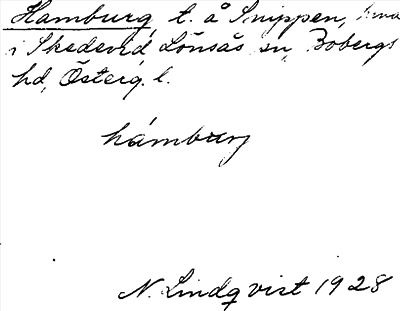 Hamburg, t. å Snippen,
i Skedevid, Lönsås sn, Bobergs
hd, Österg. l.
hámburg
N. Lindqvist 1928